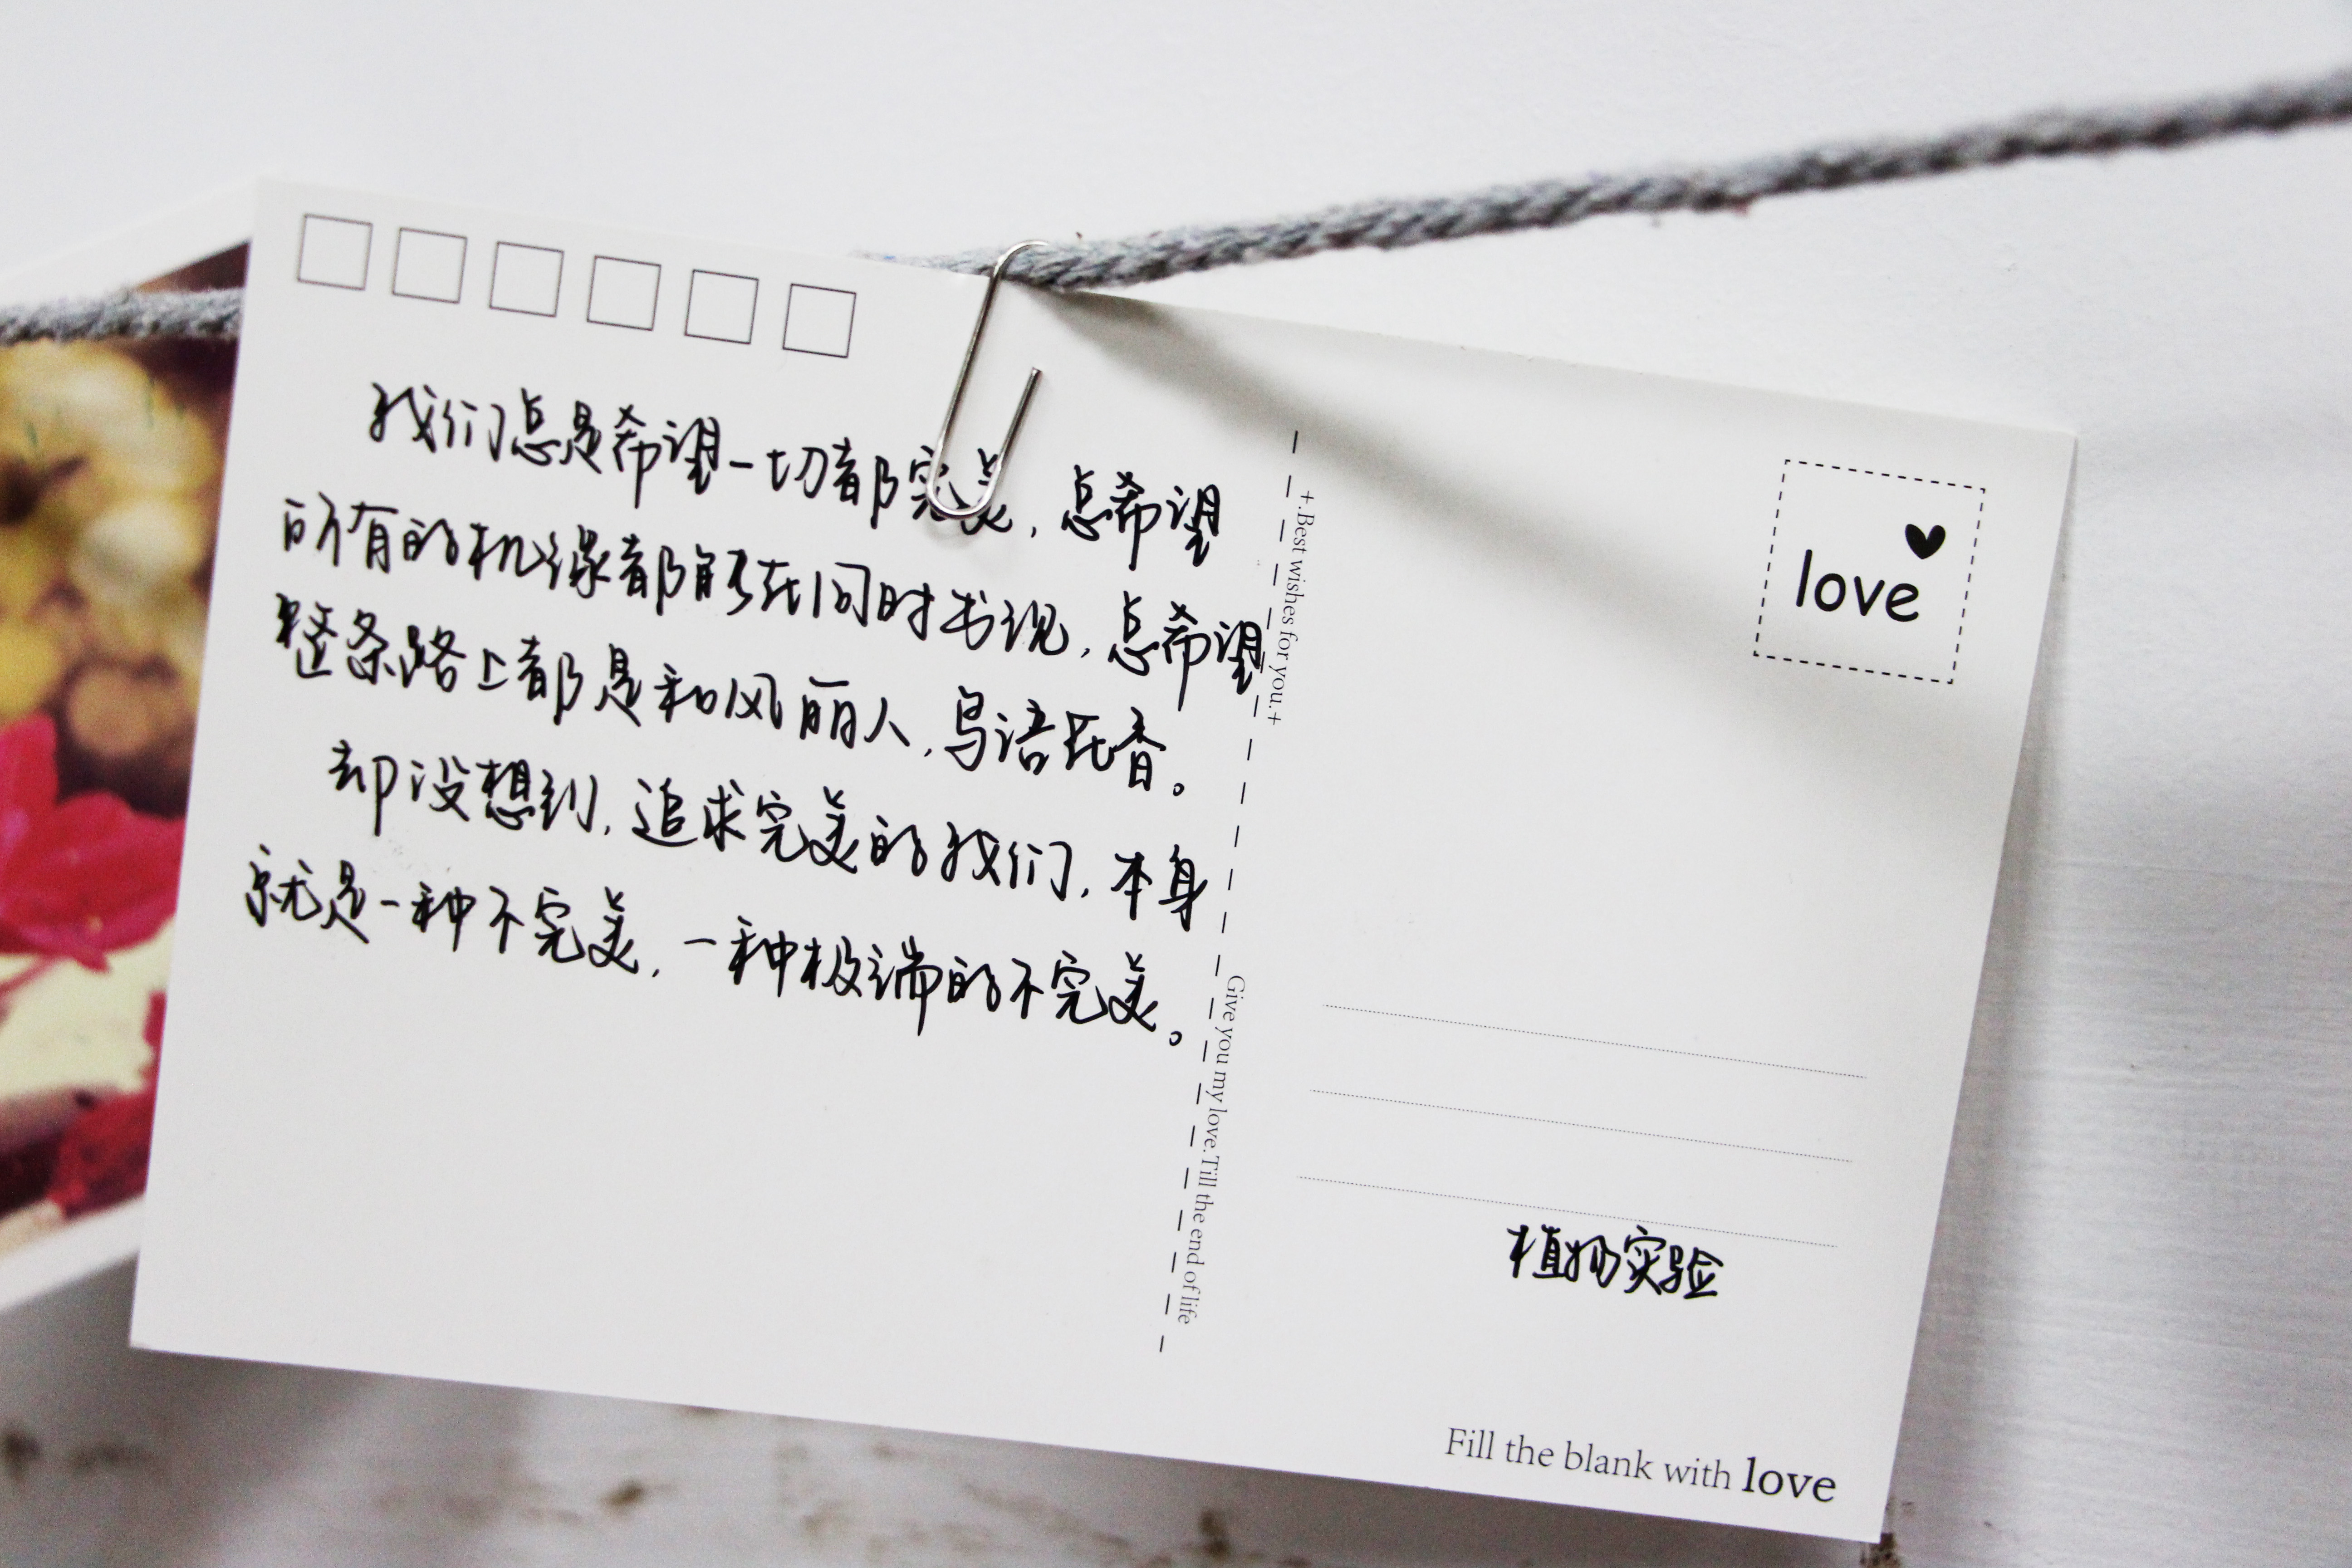 我们总是希望一切都完美,总希望
所有的机缘都能在同时出现,总希望
整条路上都是和风丽人,鸟语花香。
却没想到,追求完美的我们,本身
就是一种不完美,一种极端的不完美。
+.Best wishes for you.+
Give you my love.Till the end of life
love
植物实验
Fill the blank with love